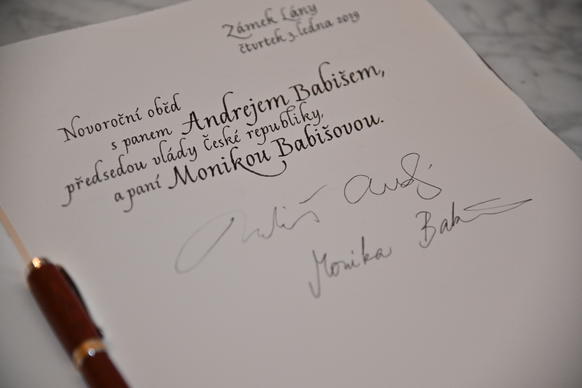 Zámek Lány
čtvrtek 3. ledna 2019
Novoroční oběd
s panem Andrejem Babišem,
předsedou vlády České republiky,
a paní Monikou Babišovou.
Monika